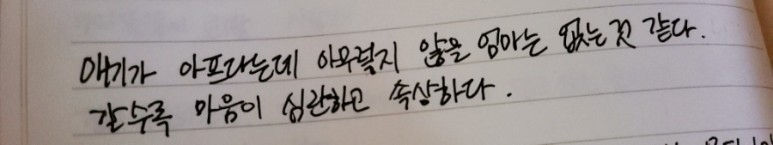 애기가 아프다는데 아무렇지 않을 엄마는 없는것 같다.
갈수록 마음이 심란하고 속상하다.